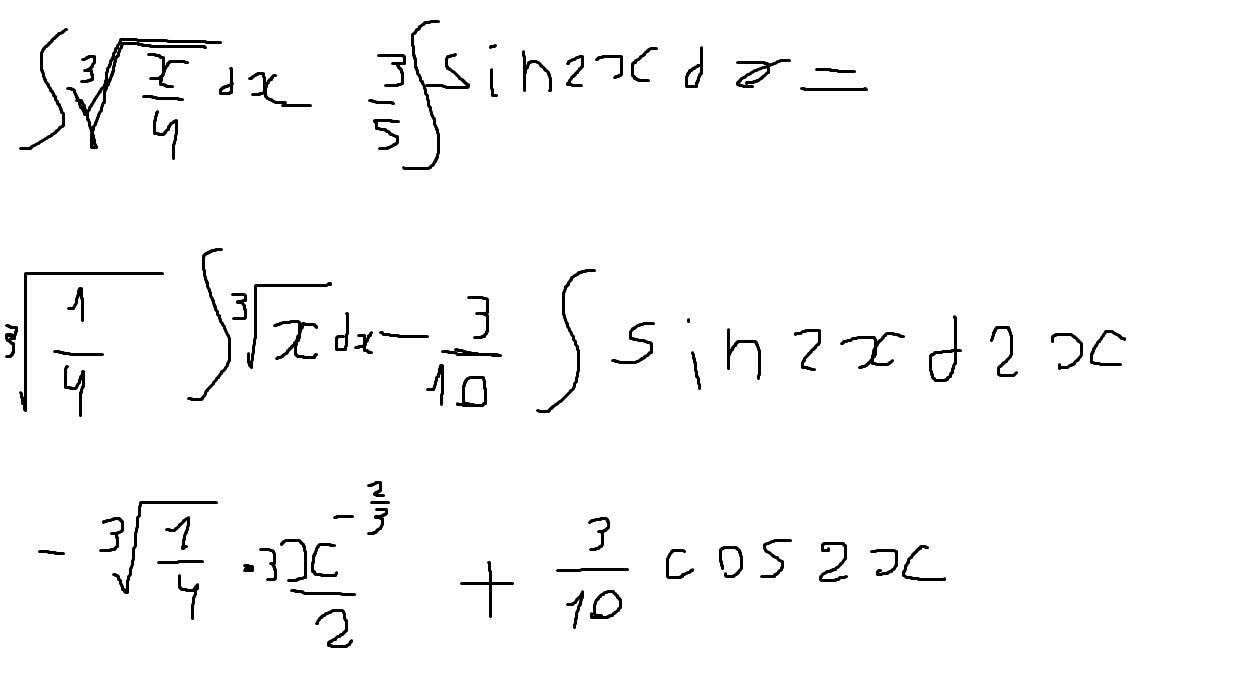 ∫ ∛(x/4) dx 3/5 ∫ sin2x dx =
∛(1/4) ∫ ∛x dx − 3/10 ∫ sin2x d2x
- ∛(1/4) · 3x^(-2/3)/2 + 3/10 cos2x